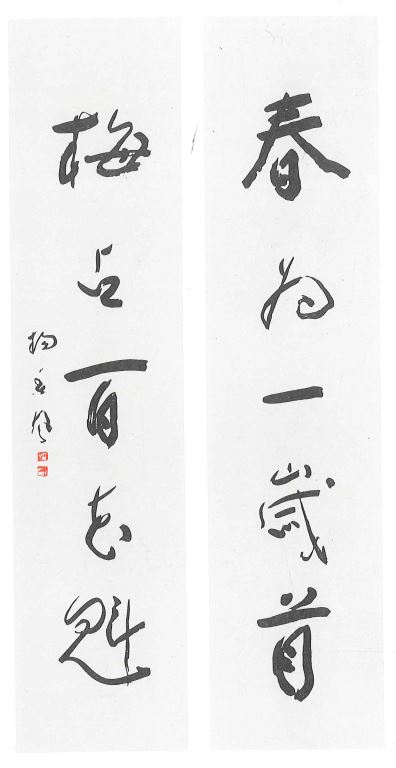 春为一歲首
梅占百花魁